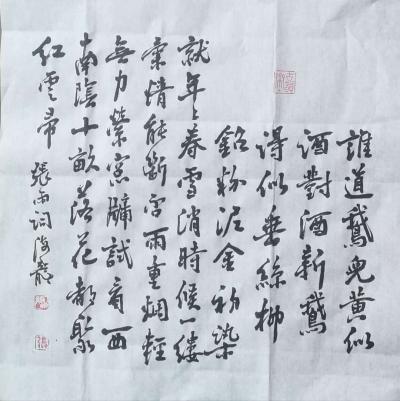 誰道鵞兒黃似
酒對酒新鵞
得似垂絲柳
鉛粉泥金初染
就年々春雪消時候一縷
柔情能斷否雨重烟輕
無力縈窗牖試看西
南陰十畝落花都聚
紅雲帚 張雨詞海龍